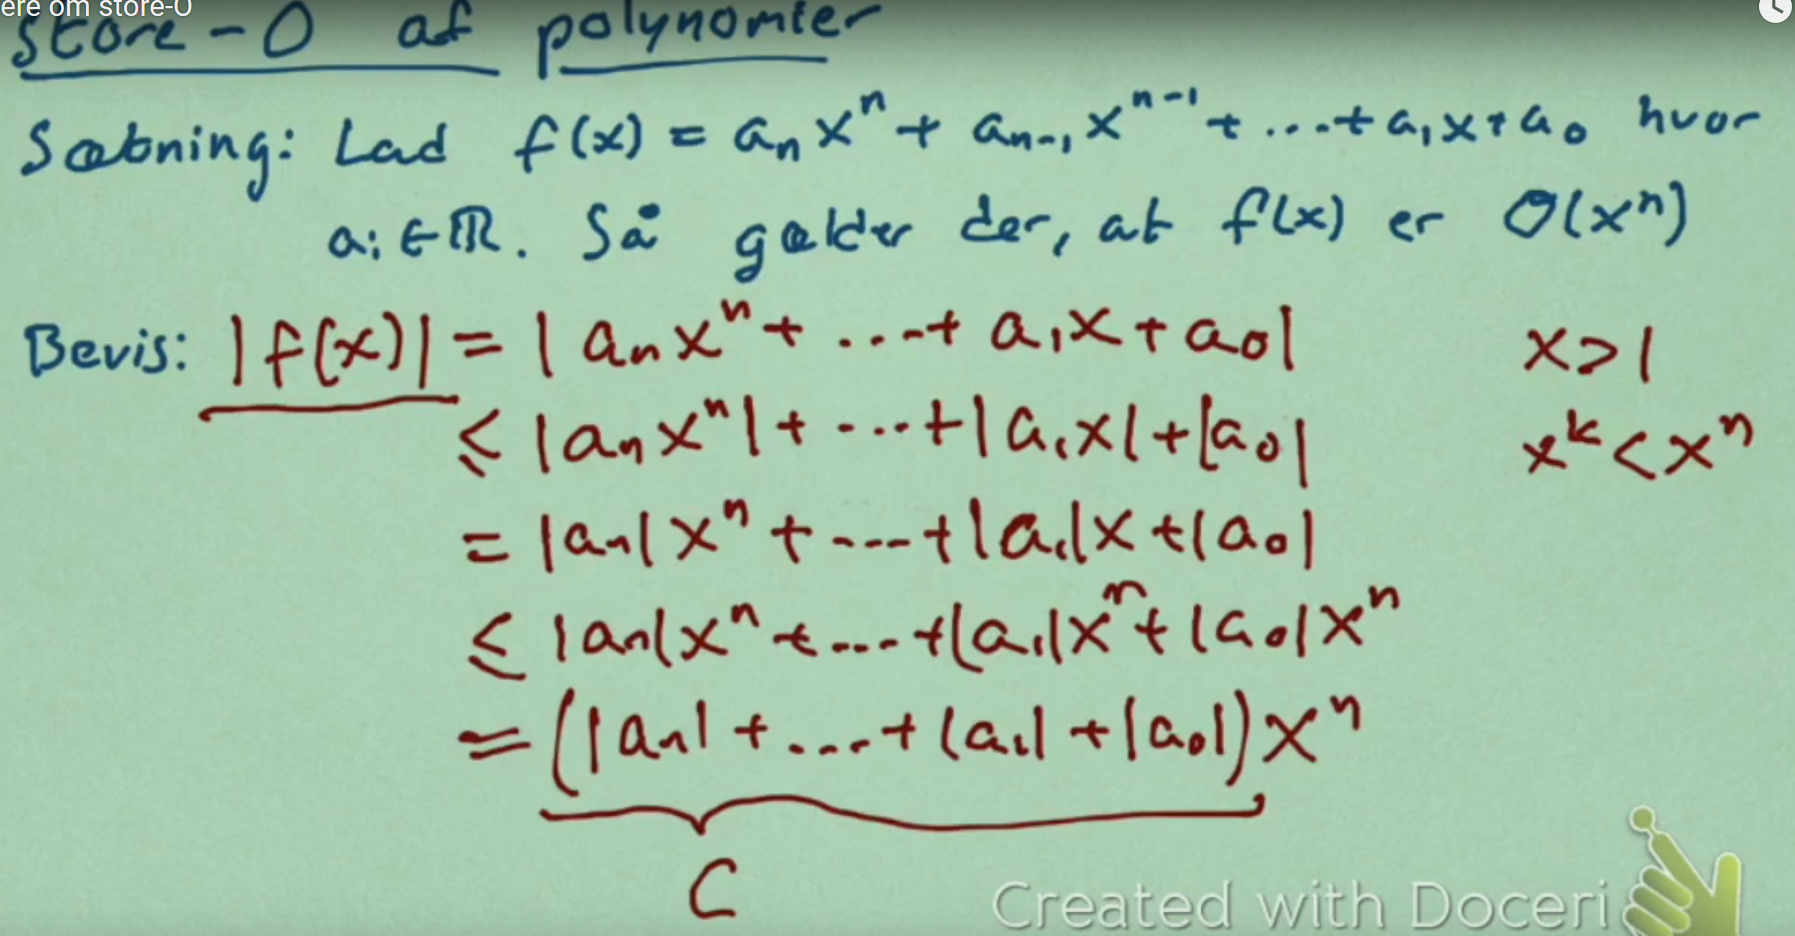 ere om store-O
Store-O af polynomier
Sætning: Lad f(x) = aₙxⁿ + aₙ₋₁xⁿ⁻¹ + ... + a₁x + a₀ hvor
aᵢ ∈ ℝ. Så gælder der, at f(x) er O(xⁿ)
Bevis: |f(x)| = |aₙxⁿ + ... + a₁x + a₀| x > 1
≤ |aₙxⁿ| + ... + |a₁x| + |a₀| xᵏ < xⁿ
= |aₙ|xⁿ + ... + |a₁|x + |a₀|
≤ |aₙ|xⁿ + ... + |a₁|xⁿ + |a₀|xⁿ
= (|aₙ| + ... + |a₁| + |a₀|)xⁿ
C
Created with Doceri